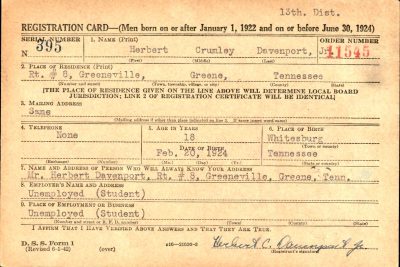 13th. Dist.
REGISTRATION CARD—(Men born on or after January 1, 1922 and on or before June 30, 1924)
SERIAL NUMBER 1. NAME (Print) ORDER NUMBER
395 Herbert Crumley Davenport, Jr. 11545
(First) (Middle) (Last)
2. PLACE OF RESIDENCE (Print)
Rt. # 8, Greeneville, Greene, Tennessee
(Town, township, village, or city) (County) (State)
[THE PLACE OF RESIDENCE GIVEN ON THE LINE ABOVE WILL DETERMINE LOCAL BOARD
JURISDICTION; LINE 2 OF REGISTRATION CERTIFICATE WILL BE IDENTICAL]
3. MAILING ADDRESS
Same
[Mailing address if other than place indicated on line 2. If same insert word same]
4. TELEPHONE 5. AGE IN YEARS 6. PLACE OF BIRTH
None 18 Whitesburg
DATE OF BIRTH (Town or county)
Feb. 20, 1924 Tennessee
(Mo.) (Day) (Yr.) (State or country)
7. NAME AND ADDRESS OF PERSON WHO WILL ALWAYS KNOW YOUR ADDRESS
Mr. Herbert Davenport, Rt. # 8, Greeneville, Greene, Tenn.
8. EMPLOYER'S NAME AND ADDRESS
Unemployed (Student)
9. PLACE OF EMPLOYMENT OR BUSINESS
Unemployed (Student)
(Number and street or R. F. D. number) (Town) (County) (State)
I AFFIRM THAT I HAVE VERIFIED ABOVE ANSWERS AND THAT THEY ARE TRUE.
D. S. S. Form 1
(Revised 6-1-42) (over) Herbert C. Davenport Jr.
(Registrant's signature)